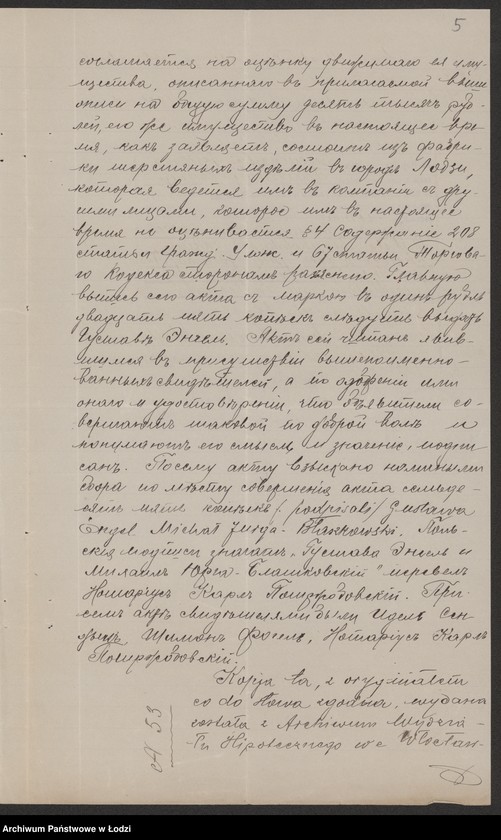 5
соглашается на оцѣнку движимаго ея иму-
щества, описаннаго въ прилагаемой выше
описи на общую сумму десять тысячъ руб-
лей, его же имущество въ настоящее вре-
мя, какъ заявляетъ, состоитъ изъ фабри-
ки шерстяныхъ издѣлій въ городѣ Лодзи,
которая ведется имъ въ компаніи съ дру-
гими лицами, которое имъ въ настоящее
время не оцѣнивается. §4 Содержаніе 208
статьи Гражд: Улож. и 67 статьи Торгова-
го Кодекса сторонамъ разяснено. Главную
выпись сего акта съ маркою въ одинъ рубль
двадцать пять копѣекъ слѣдуетъ выдать
Густавѣ Энгель. Актъ сей читанъ явив-
шимся въ присутствіи вышепоимено-
ванныхъ свидѣтелей, а по одобреніи ими
онаго и удостовѣреніи, что объявители со-
вершаютъ таковой по доброй волѣ и
понимаютъ его смыслъ и значеніе, подпи-
санъ. По сему акту взыскано
сбора по мѣсту совершенія акта семьде-
сятъ пять копѣекъ / podpisali / Gustawa
Engel Michał Jurga-Błaszkowski.
подписи значатъ „Густава Энгель и
Михаилъ Юрга-Блашковскій"
Нотаріусъ Карлъ При
семъ актѣ свидѣтелями были
Шимонъ Нотаріусъ Карлъ
Kopja ta, z oryginałem
co do słowa zgodna, wydana
została z Archiwum Wydzia-
łu Hipotecznego we Włocław-
№ 53
Archiwum Państwowe w Łodzi